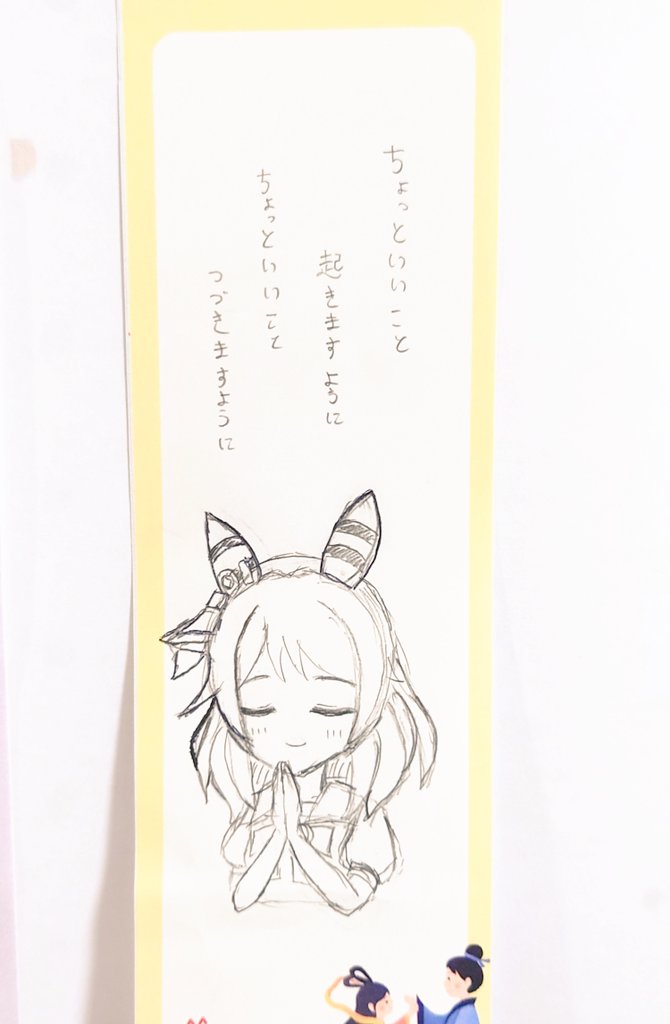 ちょっといいこと
起きますように
ちょっといいこと
つづきますように